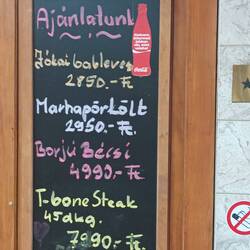 Ajánlatunk
Jókai bableves
2850.- Ft
Marhapörkölt
2950.- Ft.
Borjú Bécsi
4990.- Ft
T-bone Steak
45dkg.
7990.- Ft.